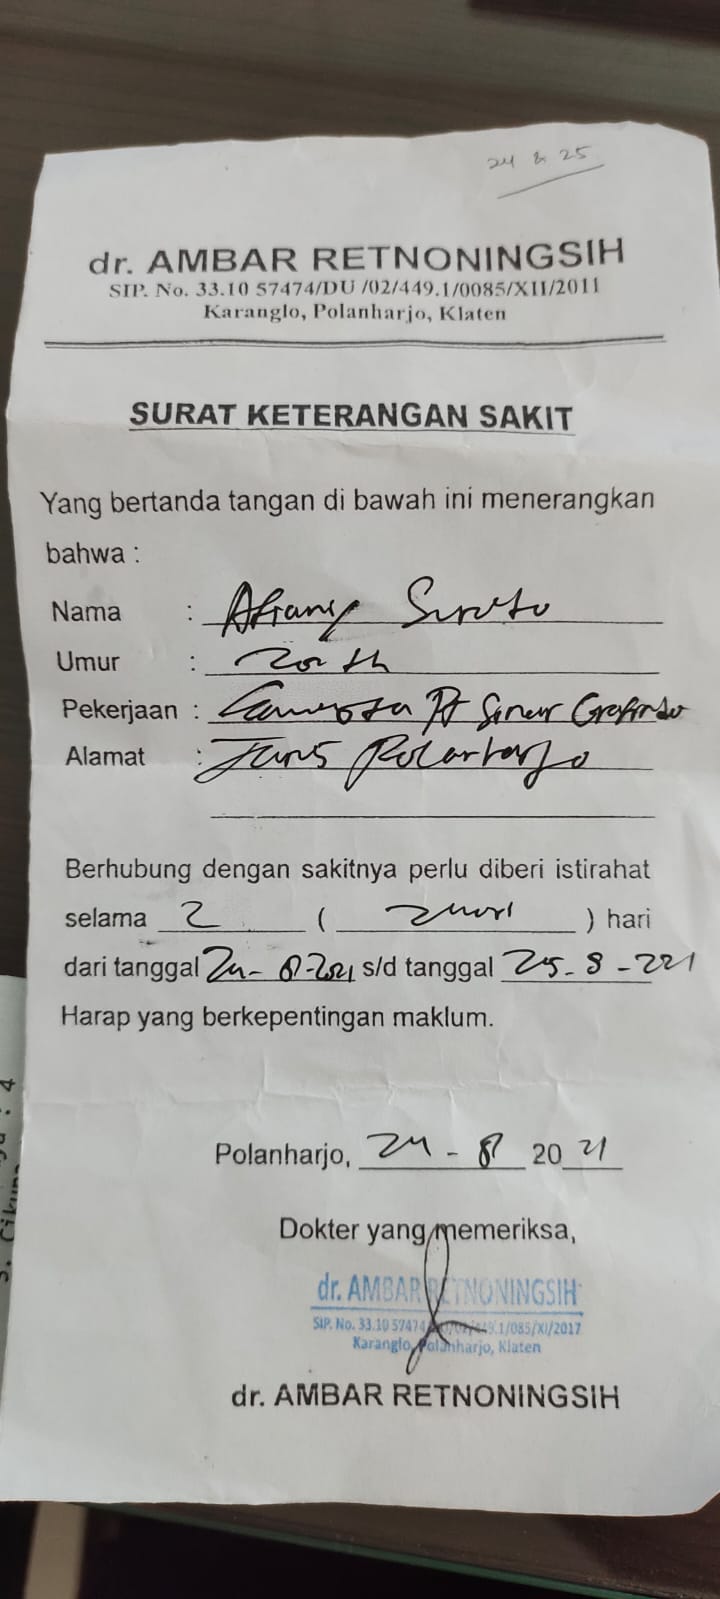 24 & 25
dr. AMBAR RETNONINGSIH
SIP. No. 33.10 57474/DU /02/449.1/0085/XII/2011
Karanglo, Polanharjo, Klaten
SURAT KETERANGAN SAKIT
Yang bertanda tangan di bawah ini menerangkan
bahwa :
Nama :
Umur : 20 th
Pekerjaan : PT Sinar Grafindo
Alamat : Polanharjo
Berhubung dengan sakitnya perlu diberi istirahat
selama 2 ( ) hari
dari tanggal 24-8-2021 s/d tanggal 25-8-221
Harap yang berkepentingan maklum.
Polanharjo, 24-8 2021
Dokter yang memeriksa,
dr. AMBAR RETNONINGSIH
SIP. No. 33.10 57474 .1/085/XI/2017
Karanglo, Polanharjo, Klaten
dr. AMBAR RETNONINGSIH